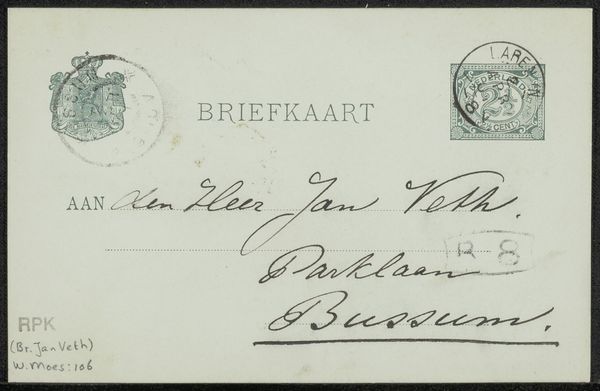 BRIEFKAART
LAREN
NEDERLAND
2½
CENT
AAN den Heer Jan Veth.
R 8
Parklaan
Bussum.
RPK
(Br. Jan Veth)
W. Moes: 106